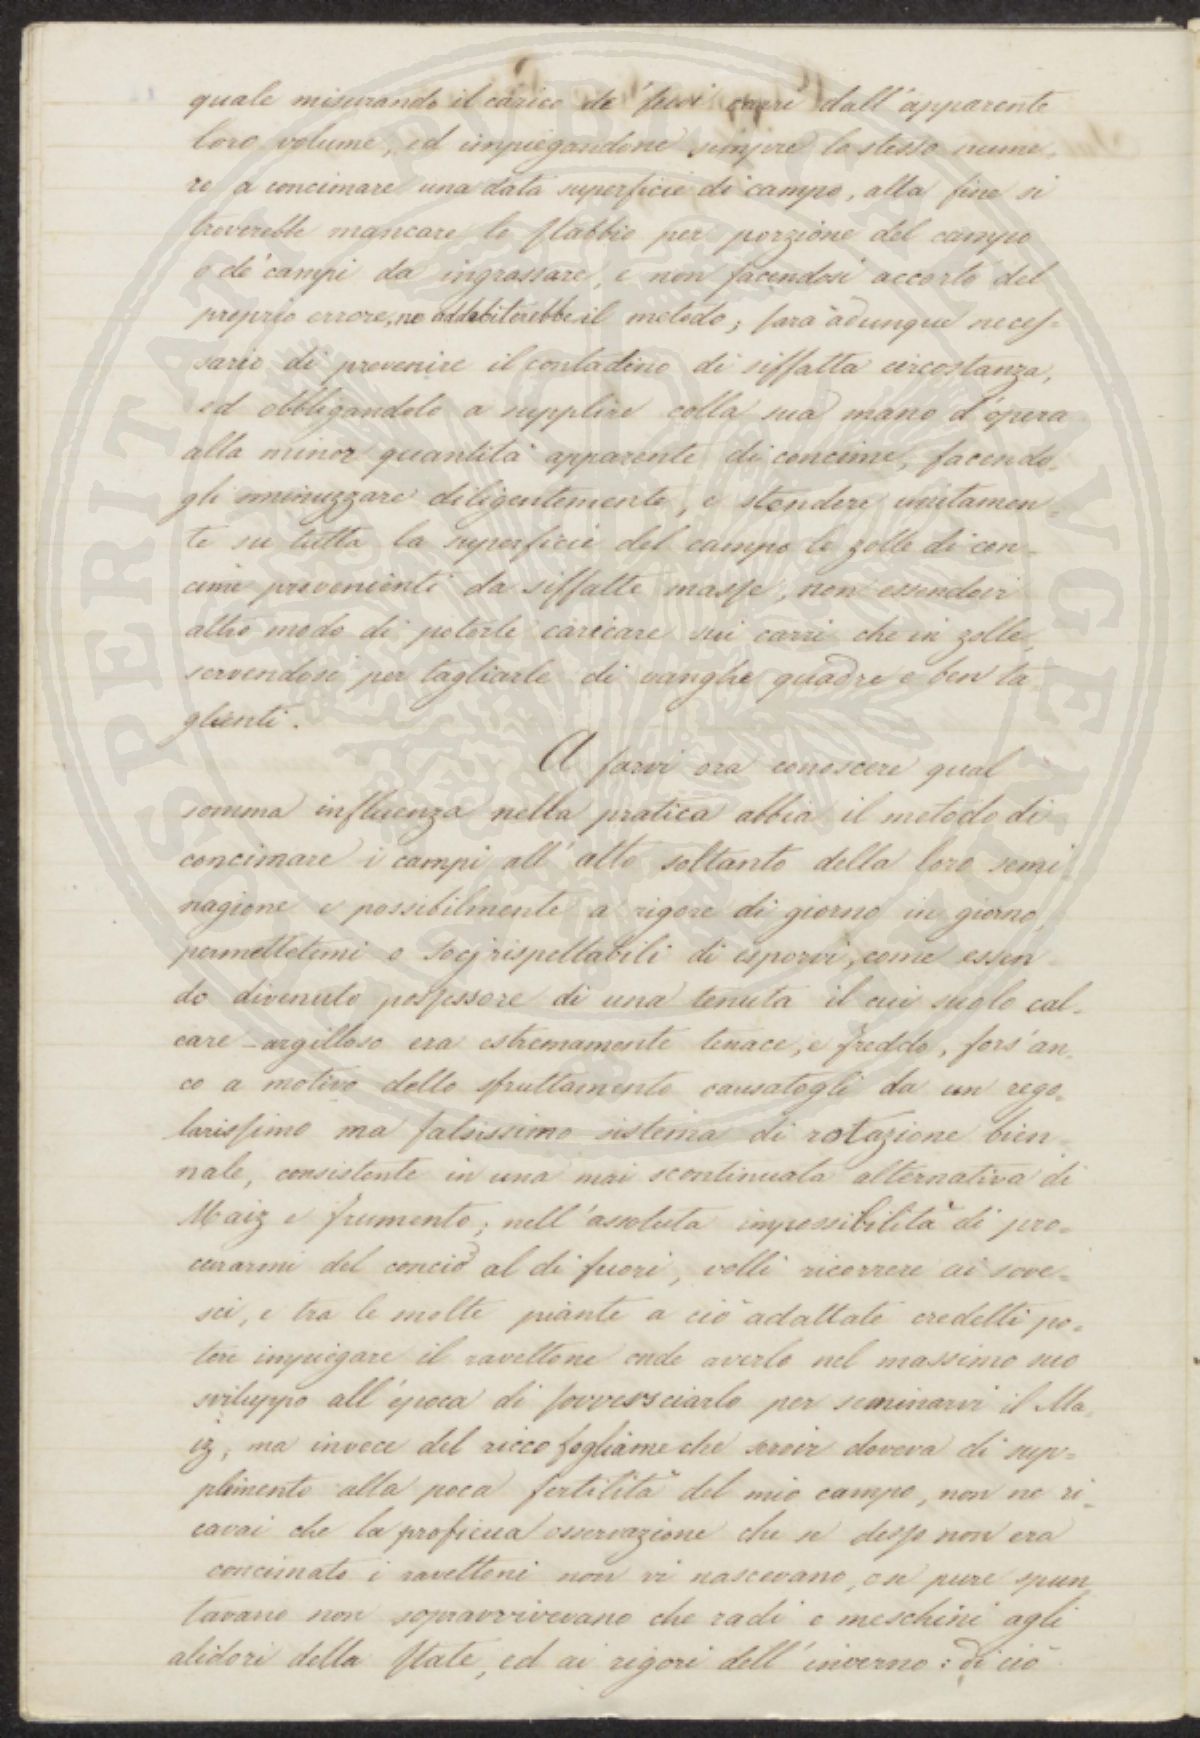 quale misurando il carico de' suoi carri dall'apparente
loro volume, ed impiegandone sempre lo stesso nume-
ro a concimare una data superficie di campo, alla fine si
troverebbe mancare lo stabbio per porzione del campo
o de' campi da ingrassare, e non facendosi accorto del
proprio errore, ne addebiterebbe il metodo; sarà adunque neces-
sario di prevenire il contadino di siffatta circostanza,
ed obbligandolo a supplire colla sua mano d'opera
alla minor quantità apparente di concime, facendo-
gli sminuzzare diligentemente, e stendere unitamen-
te su tutta la superficie del campo le zolle di con-
cime provenienti da siffatte masse, non essendovi
altro modo di poterle caricare sui carri che in zolle,
servendosi per tagliarle di vanghe quadre e ben ta-
glienti.
A farvi ora conoscere qual
somma influenza nella pratica abbia il metodo di
concimare i campi all'atto soltanto della loro semi-
nagione e possibilmente a rigore di giorno in giorno,
permettetemi o Socj rispettabili di esporvi, come essen-
do divenuto possessore di una tenuta il cui suolo cal-
care-argilloso era estremamente tenace, e freddo, fors'an-
co a motivo dello sfruttamento causatogli da un rego-
larissimo ma falsissimo sistema di rotazione bien-
nale, consistente in una mai scontinuata alternativa di
Maiz e frumento; nell'assoluta impossibilità di pro-
curarmi del concio al di fuori, volli ricorrere ai sove-
sci, e tra le molte piante a ciò adattate credetti po-
tere impiegare il ravettone onde averlo nel massimo suo
sviluppo all'epoca di sovvesciarlo per seminarvi il Ma-
iz, ma invece del ricco fogliame che servir doveva di sup-
plimento alla poca fertilità del mio campo, non ne ri-
cavai che la proficua osservazione che se desso non era
concimato i ravettoni non vi nascevano, o se pure spun-
tavano non sopravvivevano che radi e meschini agli
alidori della State, ed ai rigori dell'inverno: di ciò
SPERITAT PUBLICAE AUGENDAE